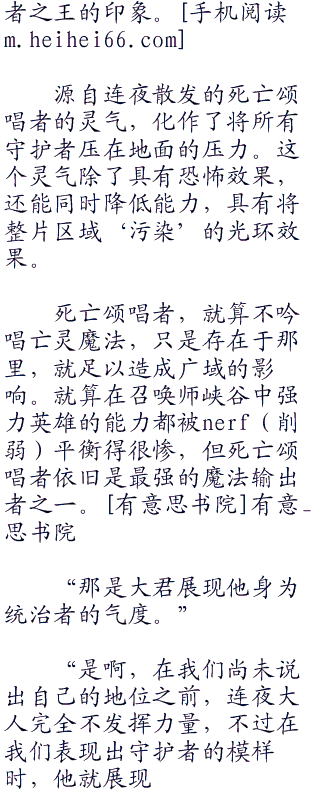 者之王的印象。[手机阅读
m.heihei66.com]
源自连夜散发的死亡颂
唱者的灵气，化作了将所有
守护者压在地面的压力。这
个灵气除了具有恐怖效果，
还能同时降低能力，具有将
整片区域‘污染’的光环效
果。
死亡颂唱者，就算不吟
唱亡灵魔法，只是存在于那
里，就足以造成广域的影
响。就算在召唤师峡谷中强
力英雄的能力都被nerf（削
弱）平衡得很惨，但死亡颂
唱者依旧是最强的魔法输出
者之一。[有意思书院]有意
思书院
“那是大君展现他身为
统治者的气度。”
“是啊，在我们尚未说
出自己的地位之前，连夜大
人完全不发挥力量，不过在
我们表现出守护者的模样
时，他就展现